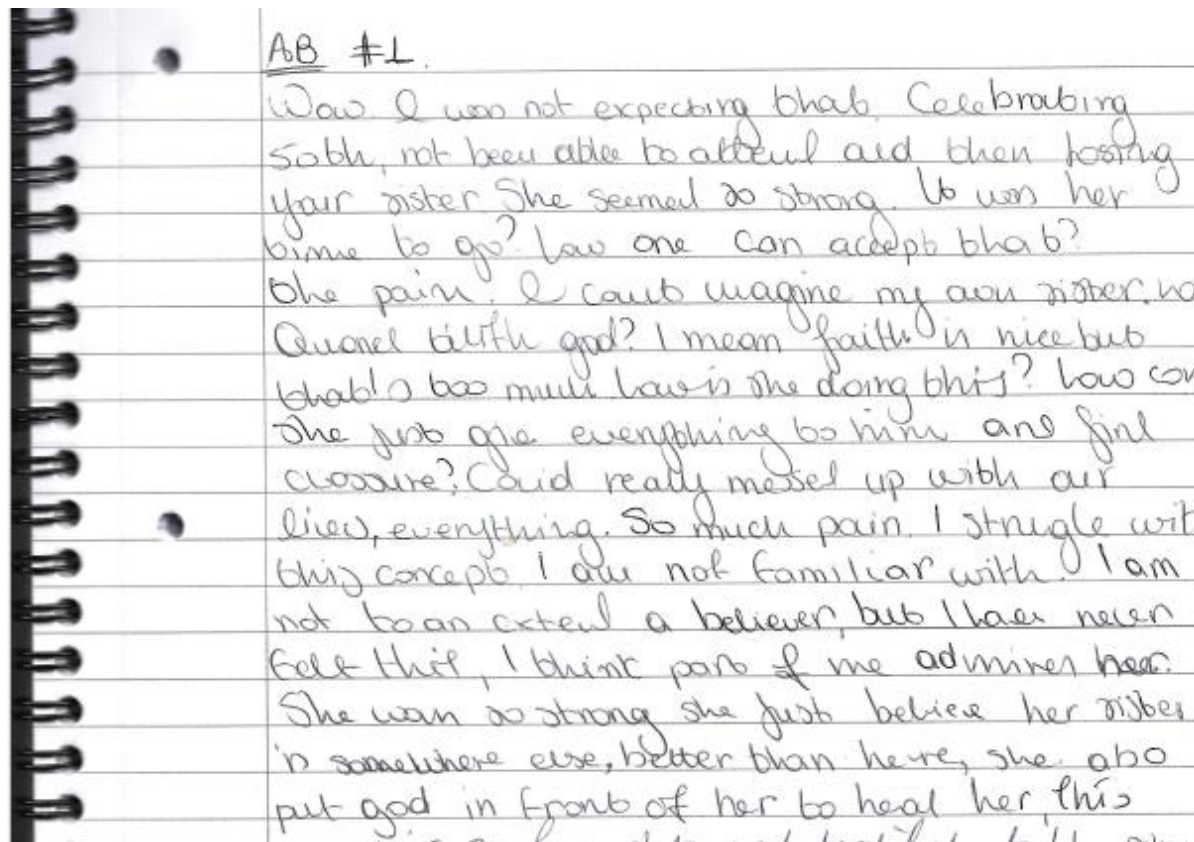 AB #1.
Wow. I was not expecting that. Celebrating
50th, not been able to attend and then losing
your sister She seemed so strong. It was her
time to go? how one can accept that?
The pain. I cant imagine my own sister. no
Quarrel with god? I mean faith is nice but
that's too much how is she doing this? how can
she just give everything to him and find
clossure? Covid really messed up with our
lives, everything. So much pain. I strugle wit
this concept. I am not familiar with. I am
not to an extend a believer, but I have never
felt this, I think part of me admires her.
She was so strong she just believe her sister
is somewhere else, better than here, she also
put god in front of her to heal her, this